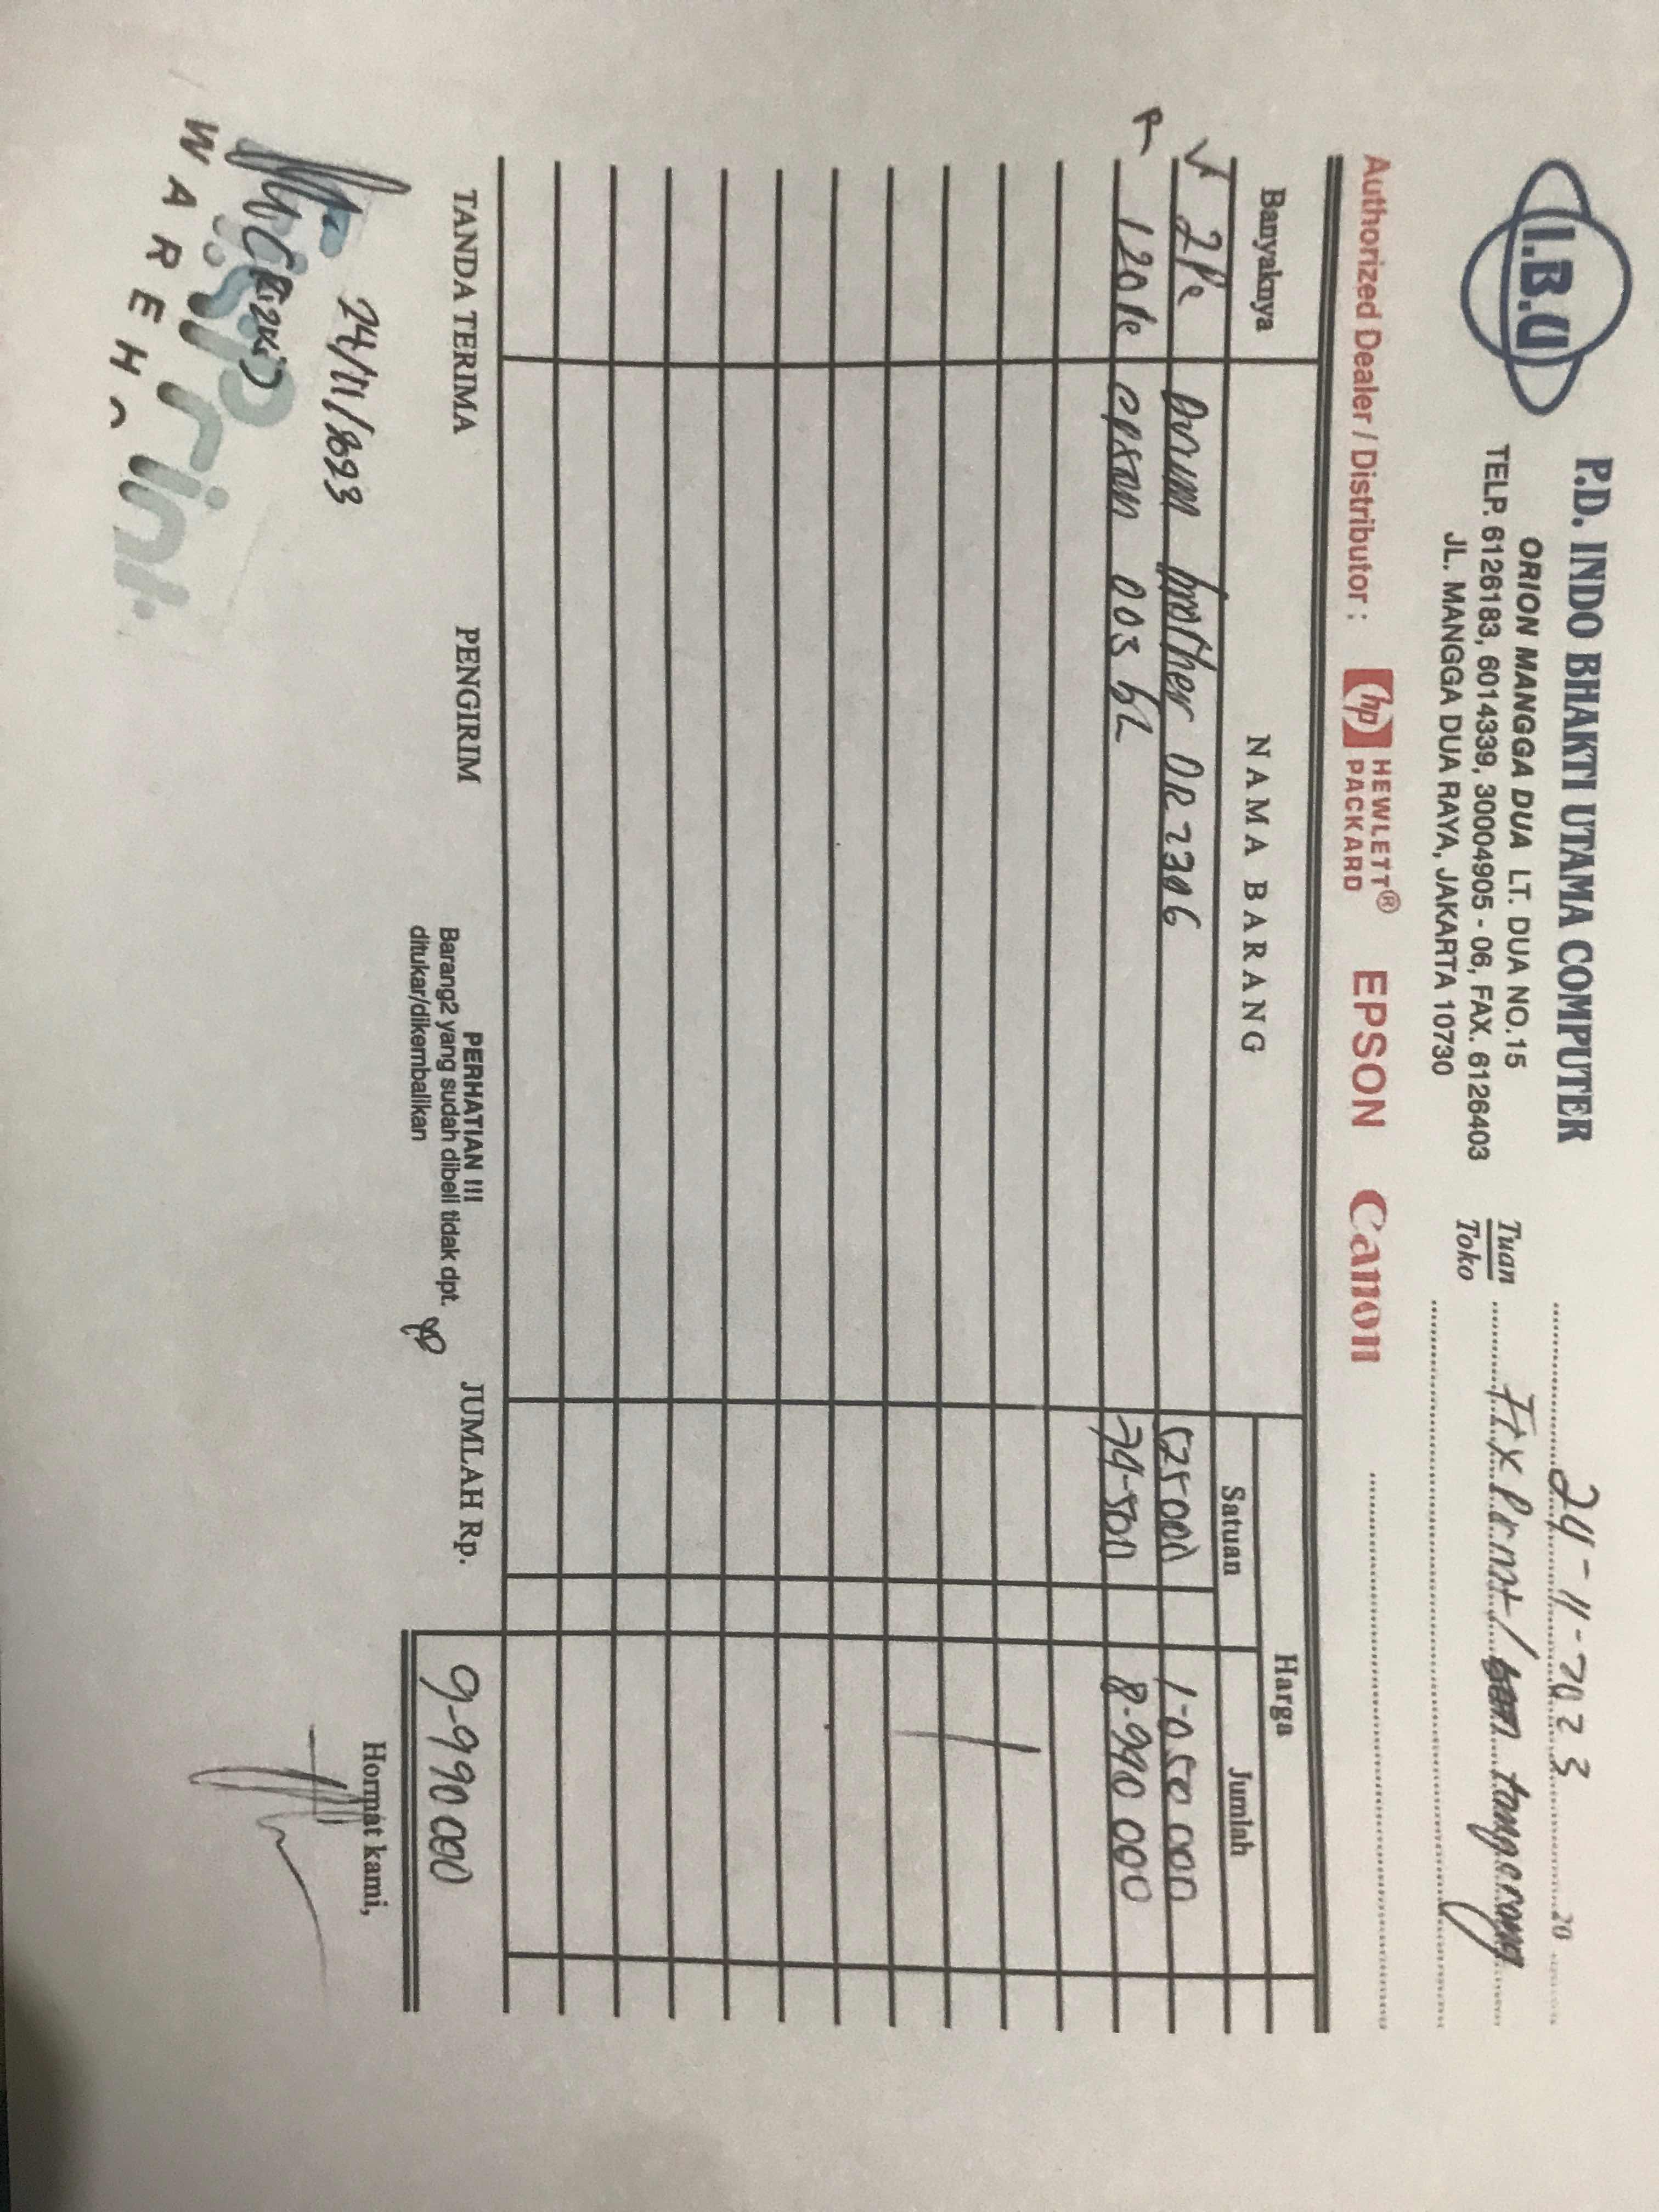 I.B.U
P.D. INDO BHAKTI UTAMA COMPUTER
ORION MANGGA DUA LT. DUA NO.15
TELP. 6126183, 6014339, 3004905 - 06, FAX. 6126403
JL. MANGGA DUA RAYA, JAKARTA 10730
24-11-2023 20
Tuan
Toko
Fix Print / tangerang
Authorized Dealer / Distributor : hp HEWLETT® PACKARD EPSON Canon
Banyaknya NAMA BARANG Harga
Satuan Jumlah
2 Pc Drum brother DR 2306 525000 1-050 000
120 Pc epson 003 bk 74-500 8-940 000
TANDA TERIMA PENGIRIM PERHATIAN !!! JUMLAH Rp. 9-990 000
Barang2 yang sudah dibeli tidak dpt.
ditukar/dikembalikan
Hormat kami,
24/11/2023
(Rizki)
WAREH